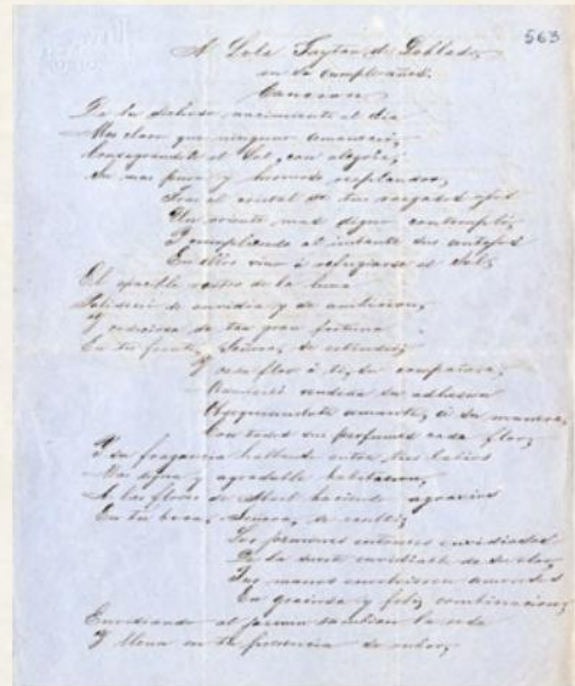 563
A Lola Gaytan de Doblado,
en su cumpleaños.
Cancion
De tu dichoso nacimiento el dia
Mas claro que ninguno amaneció,
Consagrandote el Sol, con alegria,
Su mas puro y hermoso resplandor,
Tras el cristal de tus rasgados ojos
Un oriente mas digno contempló,
Y cumpliendo al instante sus antojos
En ellos vino á refugiarse el Sol,
El apacible rostro de la luna
Palideció de envidia y de ambicion,
Y codiciosa de tan gran fortuna
En tu frente, Señora, se estendió,
Y cada flor á ti, su compañera,
rendida su adhesion
Obsequiandote amante, á su manera,
Con todos sus perfumes cada flor,
Y su fragancia hallando entre tus labios
Mas digna y agradable habitacion,
A las flores de Abril haciendo agravios
En tu boca, Señora, se
Los jazmines entonces envidiados
De la suerte envidiable de su
Tus manos
En graciosa y feliz combinacion,
al jazmin tambien la seda
Y llena en tu presencia de